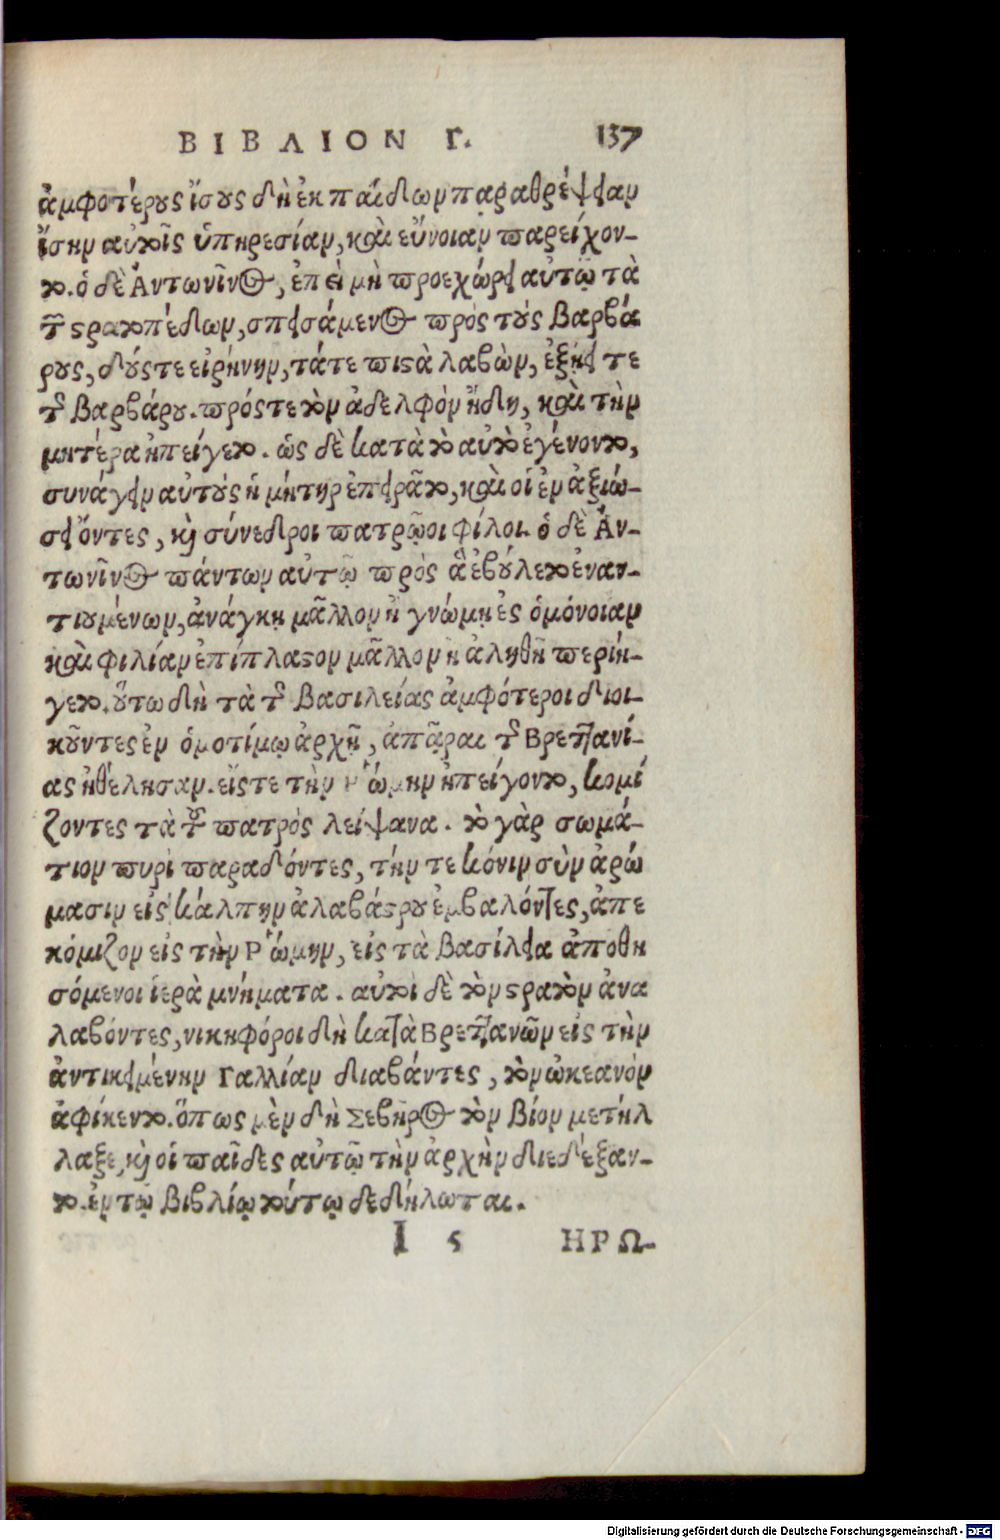 ΒΙΒΛΙΟΝ Γ. 137
ἀμφοτέρους ἴσους δὴ ἐκ παίδων παραθρέψαν
ἴσην αὐτοῖς ὑπηρεσίαν, καὶ εὔνοιαν παρείχον-
το. ὁ δὲ Ἀντωνῖνος, ἐπεὶ μὴ προεχώρει αὐτῷ τὰ
τῶν στρατοπέδων, σπεισάμενος πρὸς τοὺς βαρβά
ρους, δούς τε εἰρήνην, τά τε πιστὰ λαβὼν, ἐξῄει τε
τῆς βαρβάρου. πρός τε τὸν ἀδελφὸν ἤδη, καὶ τὴν
μητέρα ἠπείγετο. ὡς δὲ κατὰ τὸ αὐτὸ ἐγένοντο,
συνάγειν αὐτοὺς ἡ μήτηρ ἐπειρᾶτο, καὶ οἱ ἐν ἀξιώ-
σει ὄντες, καὶ σύνεδροι πατρῷοι φίλοι. ὁ δὲ Ἀν-
τωνῖνος πάντων αὐτῷ πρὸς ἃ ἐβούλετο ἐναν-
τιουμένων, ἀνάγκῃ μᾶλλον ἢ γνώμῃ ἐς ὁμόνοιαν
καὶ φιλίαν ἐπίπλαστον μᾶλλον ἢ ἀληθῆ περιή-
γετο. οὕτω δὴ τὰ τῆς βασιλείας ἀμφότεροι διοι-
κοῦντες ἐν ὁμοτίμῳ ἀρχῇ, ἀπᾶραι τῆς Βρεττανί-
ας ἠθέλησαν. εἴς τε τὴν Ῥώμην ἠπείγοντο, κομί
ζοντες τὰ τοῦ πατρὸς λείψανα. τὸ γὰρ σωμά-
τιον πυρὶ παραδόντες, τήν τε κόνιν σὺν ἀρώ
μασιν εἰς κάλπην ἀλαβάστρου ἐμβαλόντες, ἀπε
κόμιζον εἰς τὴν Ῥώμην, εἰς τὰ βασίλεια ἀποθη
σόμενοι ἱερὰ μνήματα. αὐτοὶ δὲ τὸν στρατὸν ἀνα
λαβόντες, νικηφόροι δὴ κατὰ Βρεττανῶν εἰς τὴν
ἀντικειμένην Γαλλίαν διαβάντες, τὸν ὠκεανὸν
ἀφίκοντο. ὅπως μὲν δὴ Σεβῆρος τὸν βίον μετήλ
λαξε, καὶ οἱ παῖδες αὐτοῦ τὴν ἀρχὴν διεδέξαν-
το. ἐν τῷ βιβλίῳ τούτῳ δεδήλωται.
I 5 ΗΡΩ-
Digitalisierung gefördert durch die Deutsche Forschungsgemeinschaft - DFG